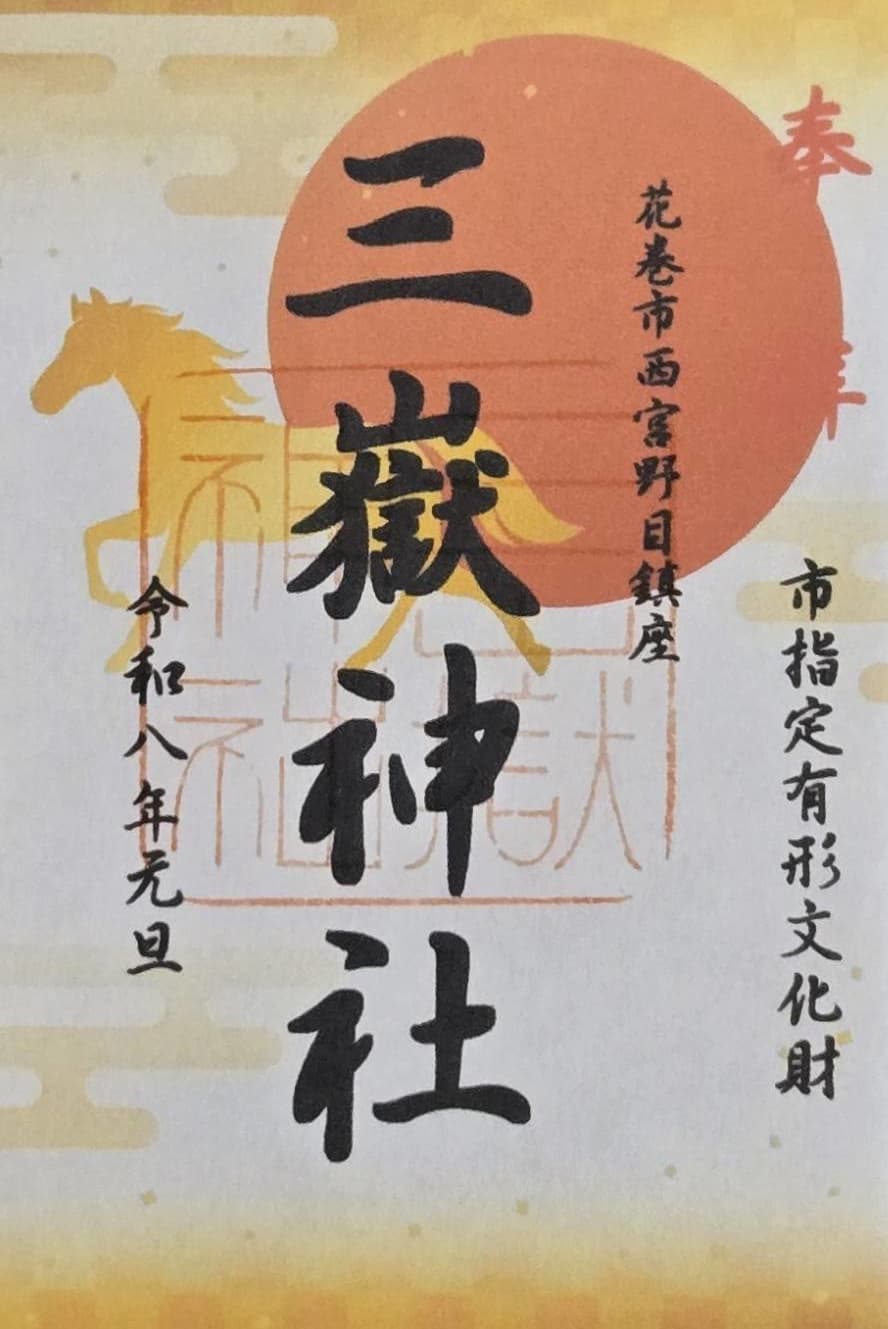 奉拝
市指定有形文化財
花巻市西宮野目鎮座
三嶽神社
三嶽神社
令和八年元旦